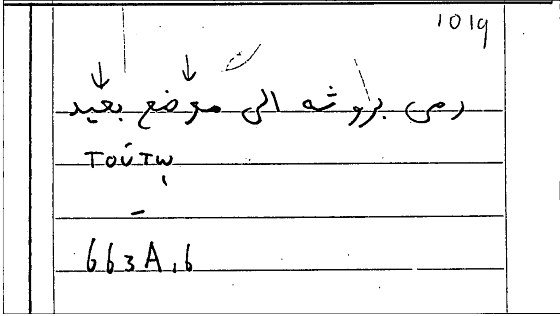 1019
رمى بروثه الى موضع بعيد
τούτῳ
–
663A.16